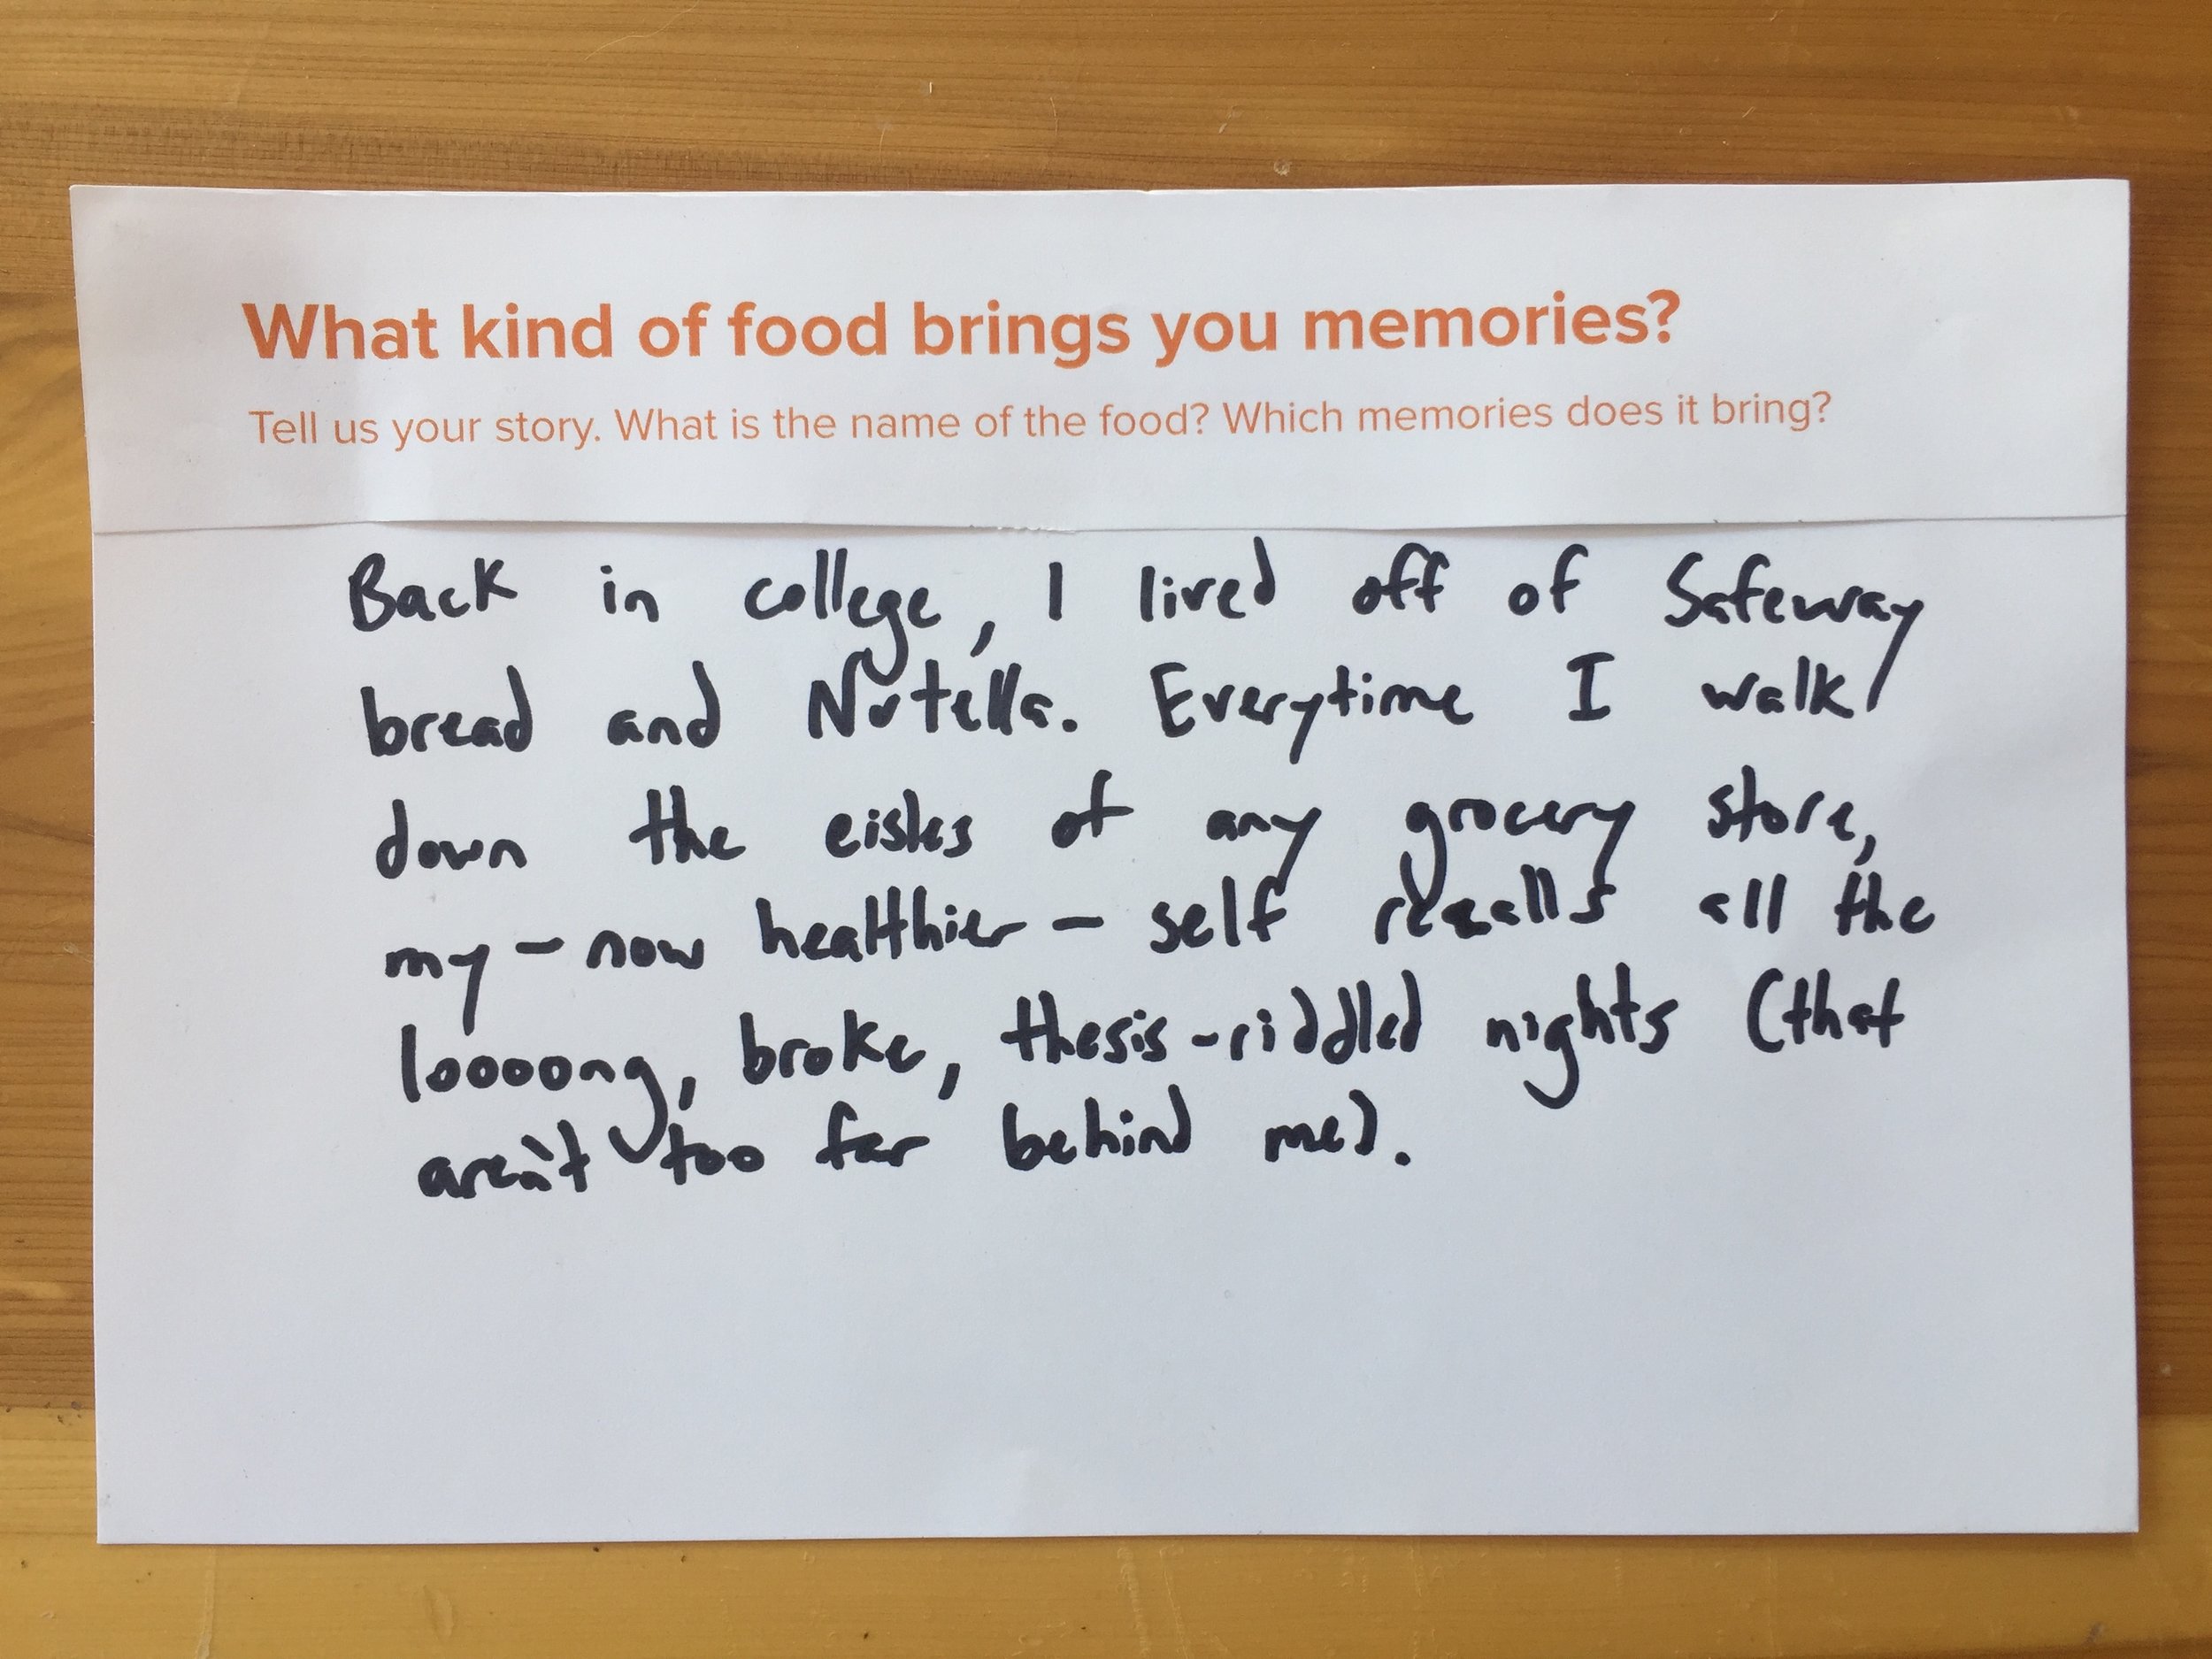 What kind of food brings you memories?
Tell us your story. What is the name of the food? Which memories does it bring?
Back in college, I lived off of Safeway
bread and Nutella. Everytime I walk
down the eisles of any grocery store,
my - now healthier - self recalls all the
loooong, broke, thesis-riddled nights (that
aren't too far behind me).